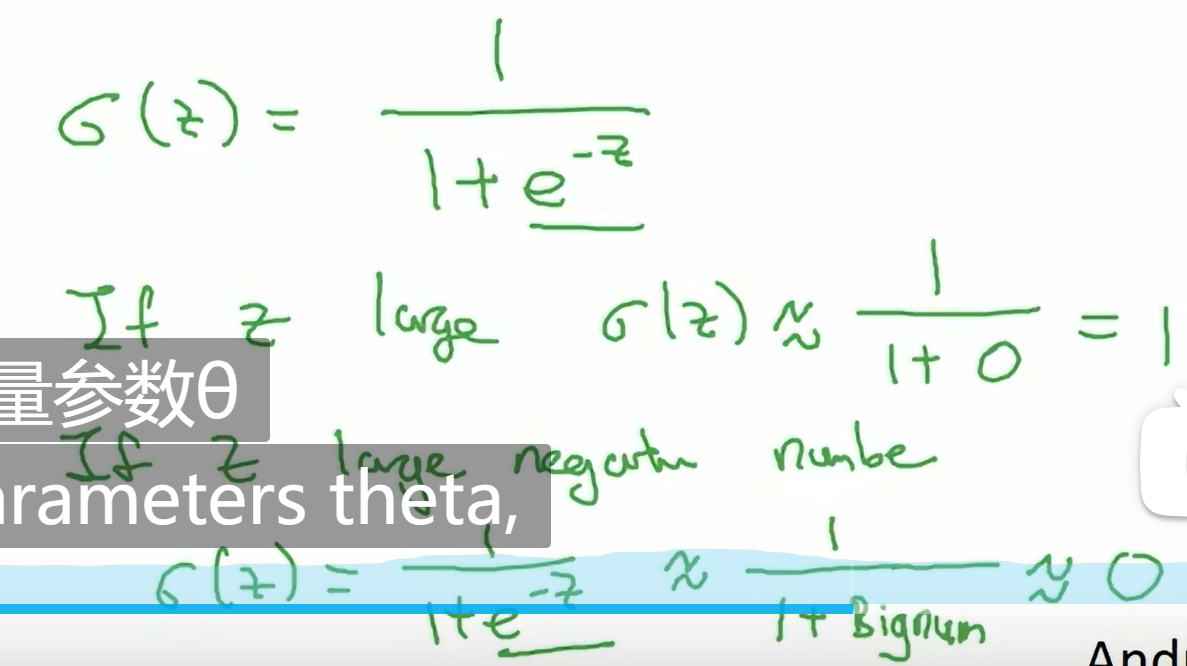 σ(z) = 1 / (1 + e^-z)
If z large σ(z) ≈ 1 / (1 + 0) = 1
量参数θ
If z large negative number
arameters theta,
σ(z) = 1 / (1 + e^-z) ≈ 1 / (1 + Bignum) ≈ 0
And